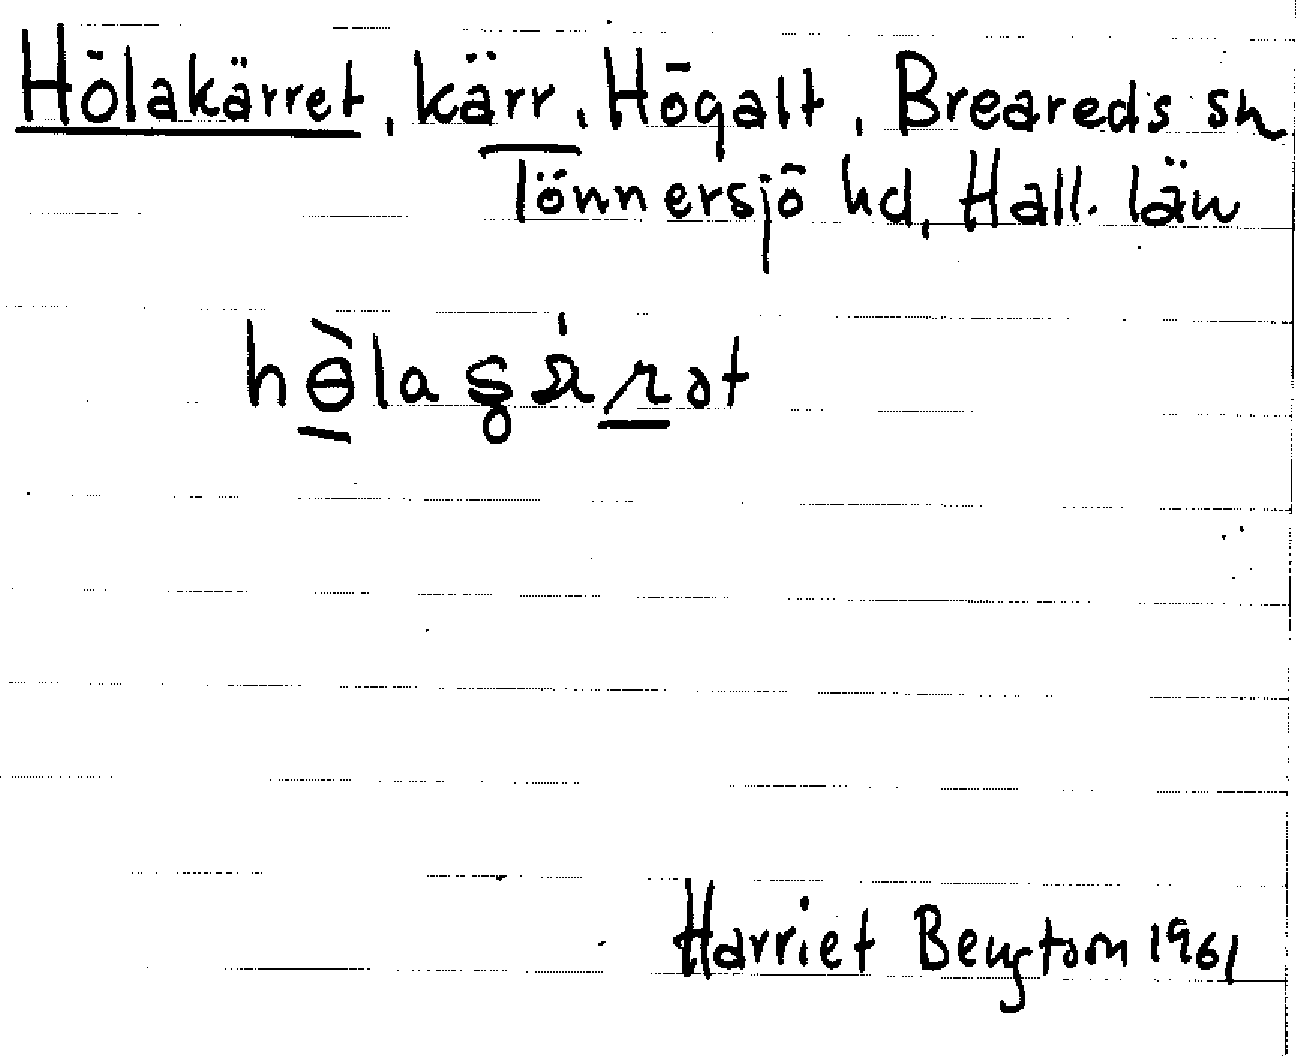 Hölakärret, kärr, Högalt, Breareds sn
Tönnersjö hd, Hall. län
Harriet Bengtson 1961